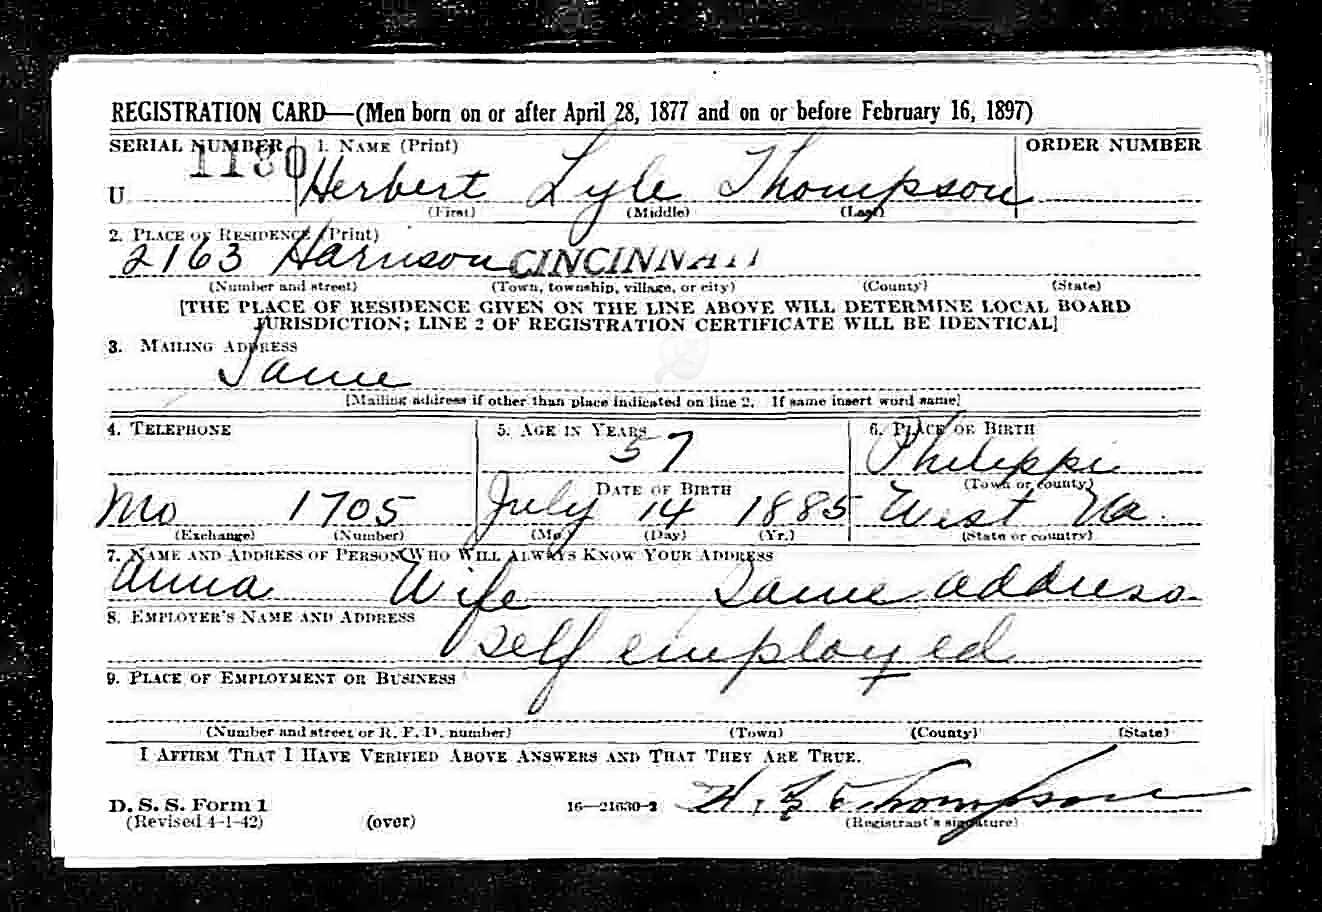 REGISTRATION CARD—(Men born on or after April 28, 1877 and on or before February 16, 1897)
SERIAL NUMBER 1. NAME (Print) ORDER NUMBER
U 1130 Herbert Lyle Thompson
(First) (Middle) (Last)
2. PLACE OF RESIDENCE (Print)
2163 Harrison CINCINNATI
(Number and street) (Town, township, village, or city) (County) (State)
[THE PLACE OF RESIDENCE GIVEN ON THE LINE ABOVE WILL DETERMINE LOCAL BOARD
JURISDICTION; LINE 2 OF REGISTRATION CERTIFICATE WILL BE IDENTICAL]
3. MAILING ADDRESS
Same
[Mailing address if other than place indicated on line 2. If same insert word same]
4. TELEPHONE 5. AGE IN YEARS 6. PLACE OF BIRTH
57 Philippi
DATE OF BIRTH (Town or county)
Mo 1705 July 14 1885 West Va.
(Exchange) (Number) (Mo.) (Day) (Yr.) (State or country)
7. NAME AND ADDRESS OF PERSON WHO WILL ALWAYS KNOW YOUR ADDRESS
Anna Wife Same address
8. EMPLOYER'S NAME AND ADDRESS
Self employed
9. PLACE OF EMPLOYMENT OR BUSINESS
(Number and street or R. F. D. number) (Town) (County) (State)
I AFFIRM THAT I HAVE VERIFIED ABOVE ANSWERS AND THAT THEY ARE TRUE.
H. L. Thompson
D. S. S. Form 1 16—21630-2
(Revised 4-1-42) (over) (Registrant's signature)